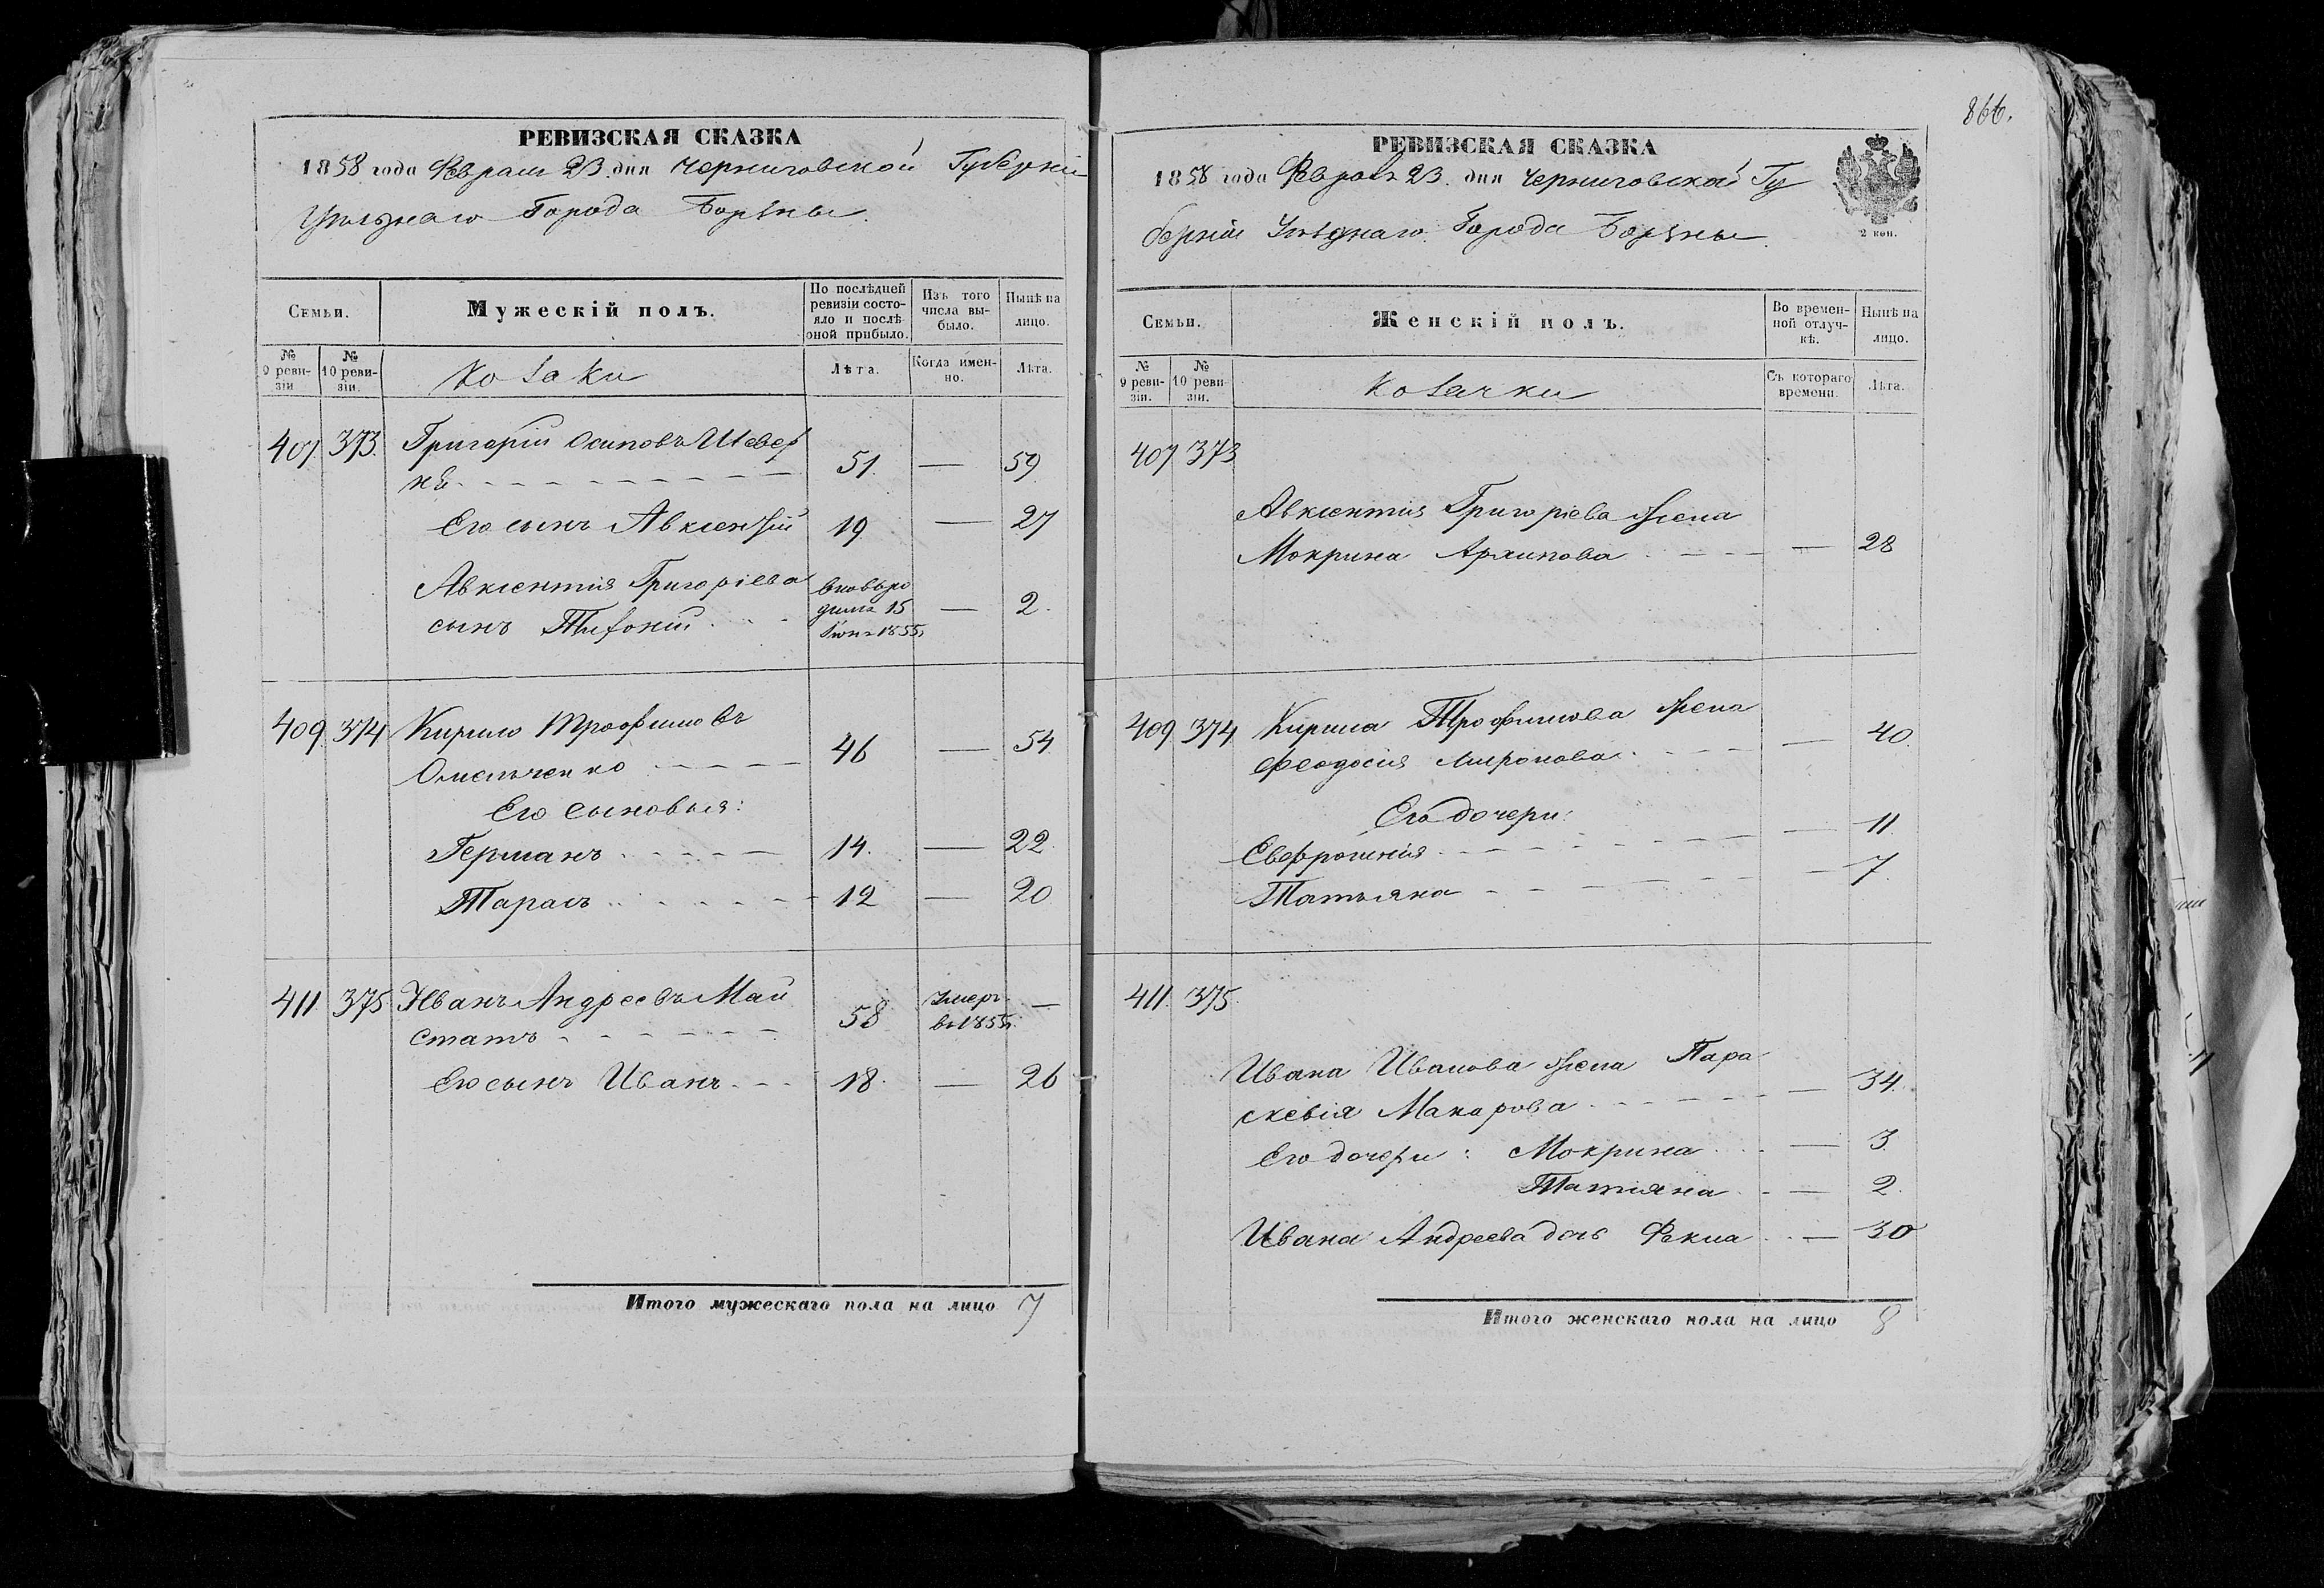 РЕВИЗСКАЯ СКАЗКА
1858 года Февраля 23. дня Черниговской Губерніи
Уѣзднаго Города Борзны.
Семьи.
Мужескій полъ.
По послѣдней ревизіи состояло и послѣ оной прибыло.
Изъ того числа выбыло.
Нынѣ на лицо.
№ 9 ревизіи
№ 10 ревизіи.
Козаки
Лѣта.
Когда именно.
Лѣта.
407 373. Григорій Осиповъ Шевер
51. — 59
Его сынъ Авксентій 19 — 27
Авксентія Григоріева
сынъ
вновь ро
дился 15
1855 — 2.
409 374 Кирило Трофимовъ
Омельченко 46 — 54
Его сыновья:
Германъ 14. — 22.
Тарасъ 12 — 20
411 375. Иванъ Андреевъ Май
статъ 58
Умеръ
въ 1855 г. —
Его сынъ Иванъ 18. — 26
Итого мужескаго пола на лицо 7
866.
РЕВИЗСКАЯ СКАЗКА
1858 года Февраля 23. дня Черниговской Гу
берніи Уѣзднаго Города Борзны.
2 коп.
Семьи.
Женскій полъ.
Во временной отлучкѣ.
Нынѣ на лицо.
№ 9 ревизіи.
№ 10 ревизіи.
Козачки
Съ котораго времени.
Лѣта.
407 373
Авксентія Григоріева жена
Мокрина Архипова — 28
409 374 Кирила Трофимова жена
Феодосія Миронова — 40.
Его дочери:
Евфросинія — 11.
Татьяна — 7
411. 375.
Ивана Иванова жена Пара
скевія Макарова — 34.
Его дочери: Мокрина — 3.
Татіяна — 2.
Ивана Андреева дочь Фекла — 30
Итого женскаго пола на лицо 8